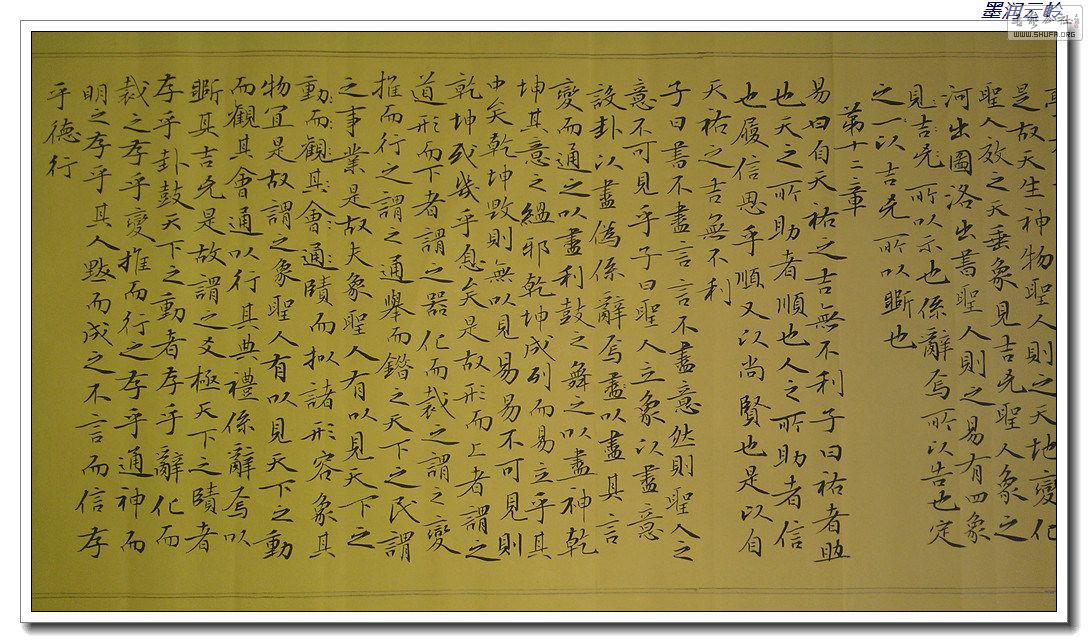 墨润云岭
WWW.SHUFA.ORG
是故天生神物聖人則之天地變化
聖人效之天垂象見吉凶聖人象之
河出圖洛出書聖人則之易有四象
見吉凶所以示也係辭焉所以告也定
之一以吉凶所以斷也
第十二章
易曰自天祐之吉無不利子曰祐者助
也天之所助者順也人之所助者信
也履信思乎順又以尚賢也是以自
天祐之吉無不利
子曰書不盡言言不盡意然則聖人之
意不可見乎子曰聖人立象以盡意
設卦以盡偽係辭焉盡以盡其言
變而通之以盡利鼓之舞之以盡神乾
坤其意之縕邪乾坤成列而易立乎其
中矣乾坤毀則無以見易易不可見則
乾坤或幾乎息矣是故形而上者謂之
道形而下者謂之器化而裁之謂之變
推而行之謂之通舉而錯之天下之民謂
之事業是故夫象聖人有以見天下之
動而觀其會通賾而擬諸形容象其
物宜是故謂之象聖人有以見天下之動
而觀其會通以行其典禮係辭焉以
斷其吉凶是故謂之爻極天下之賾者
存乎卦鼓天下之動者存乎辭化而
裁之存乎變推而行之存乎通神而
明之存乎其人默而成之不言而信存
乎德行